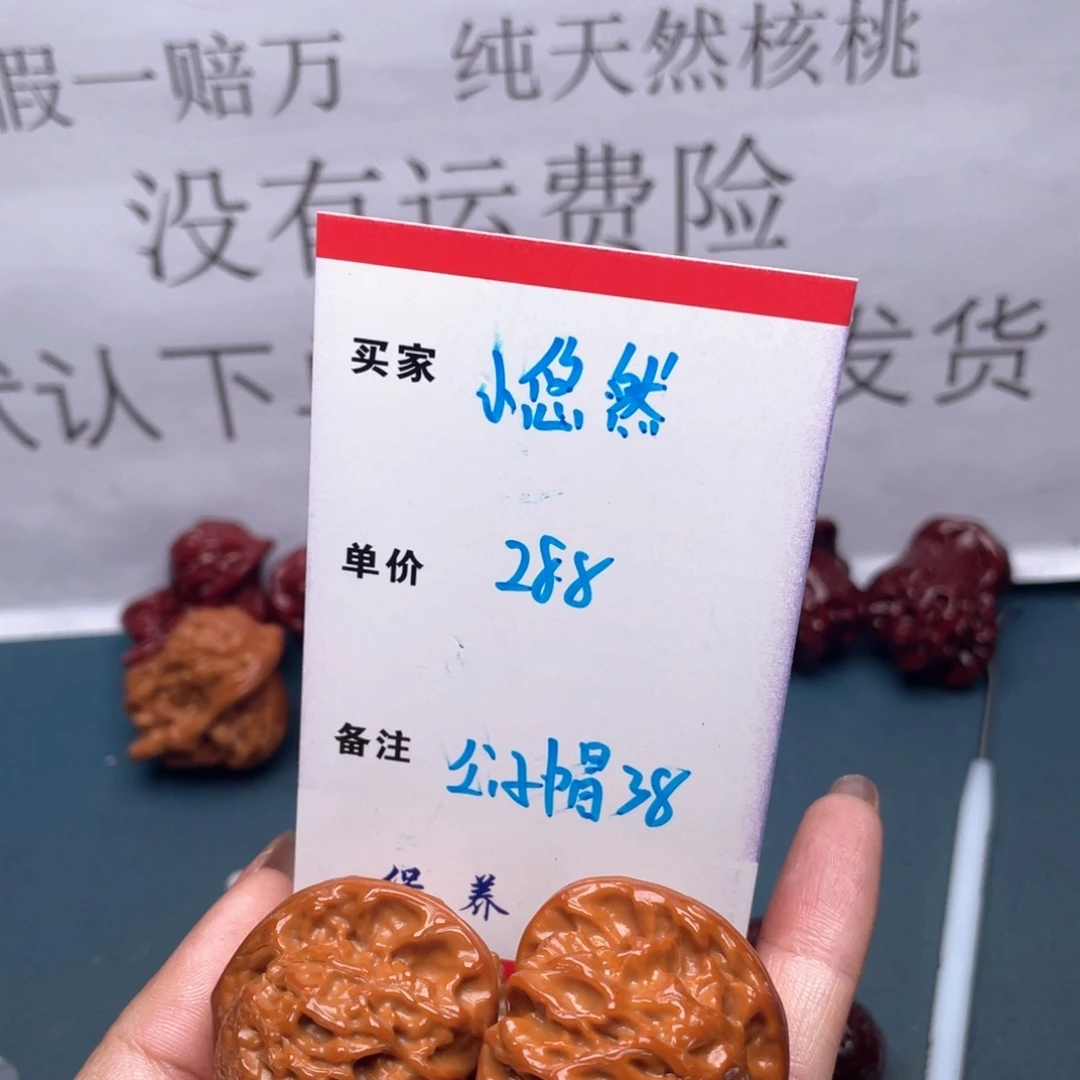 假一赔万 纯天然核桃
没有运费险
默认下 发货
买家 小悠然
单价 288
备注 公子帽38
保养